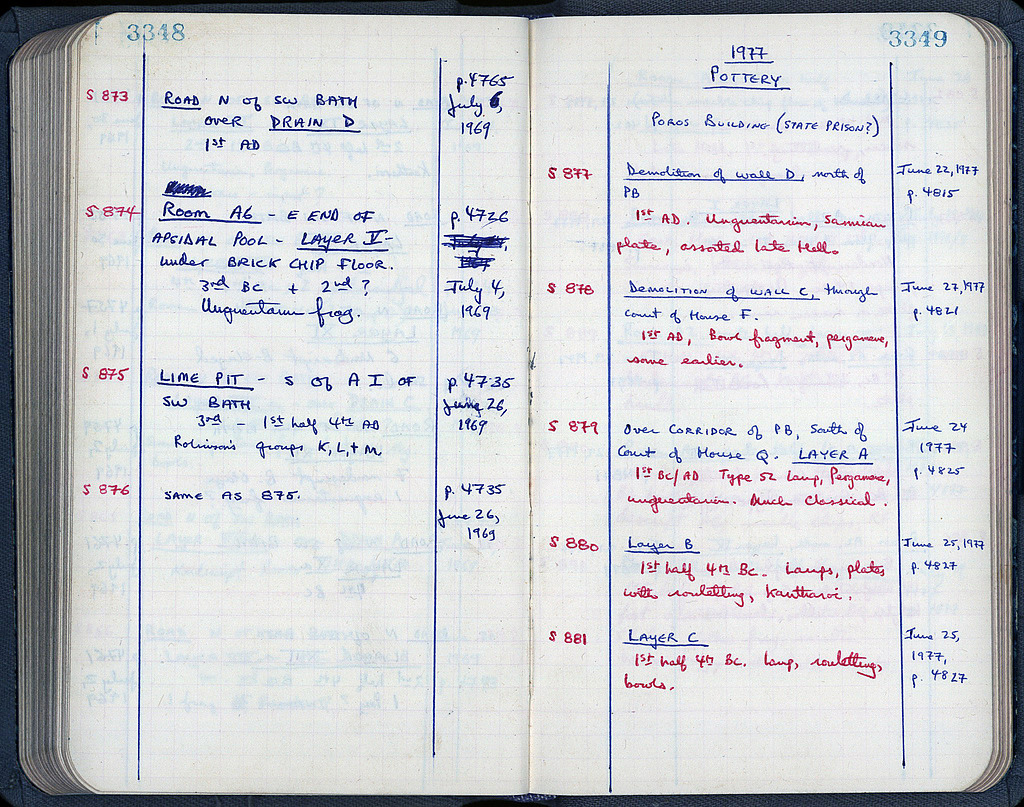 3348
S 873
ROAD N of SW BATH
over DRAIN D
1st AD
p. 4765
July 6,
1969
S 874
Room A6 - E END OF
APSIDAL POOL - LAYER V -
under BRICK CHIP FLOOR.
3rd BC + 2nd ?
Unguentarium frag.
p. 4726
July 4,
1969
S 875
LIME PIT - S of A I OF
SW BATH
3rd - 1st half 4th AD
Robinson's groups K, L, + M.
p. 4735
June 26,
1969
S 876
SAME AS 875.
p. 4735
June 26,
1969
3349
1977
POTTERY
POROS BUILDING (STATE PRISON?)
S 877
Demolition of wall D, north of
PB
1st AD. Unguentarium, Samian
plate, assorted late Hell.
June 22, 1977
p. 4815
S 878
DEMOLITION of WALL C, through
court of House F.
1st AD, Bowl fragment, pergamene,
some earlier.
June 27, 1977
p. 4821
S 879
OVER CORRIDOR of PB, South of
Court of House Q. LAYER A
1st BC/AD Type 52 lamp, Pergamene,
unguentarium. Much Classical.
June 24
1977
p. 4825
S 880
Layer B
1st half 4th BC. Lamps, plates
with rouletting, Kantharoi.
June 25, 1977
p. 4827
S 881
LAYER C
1st half 4th BC. Lamp, rouletting,
bowls.
June 25,
1977,
p. 4827